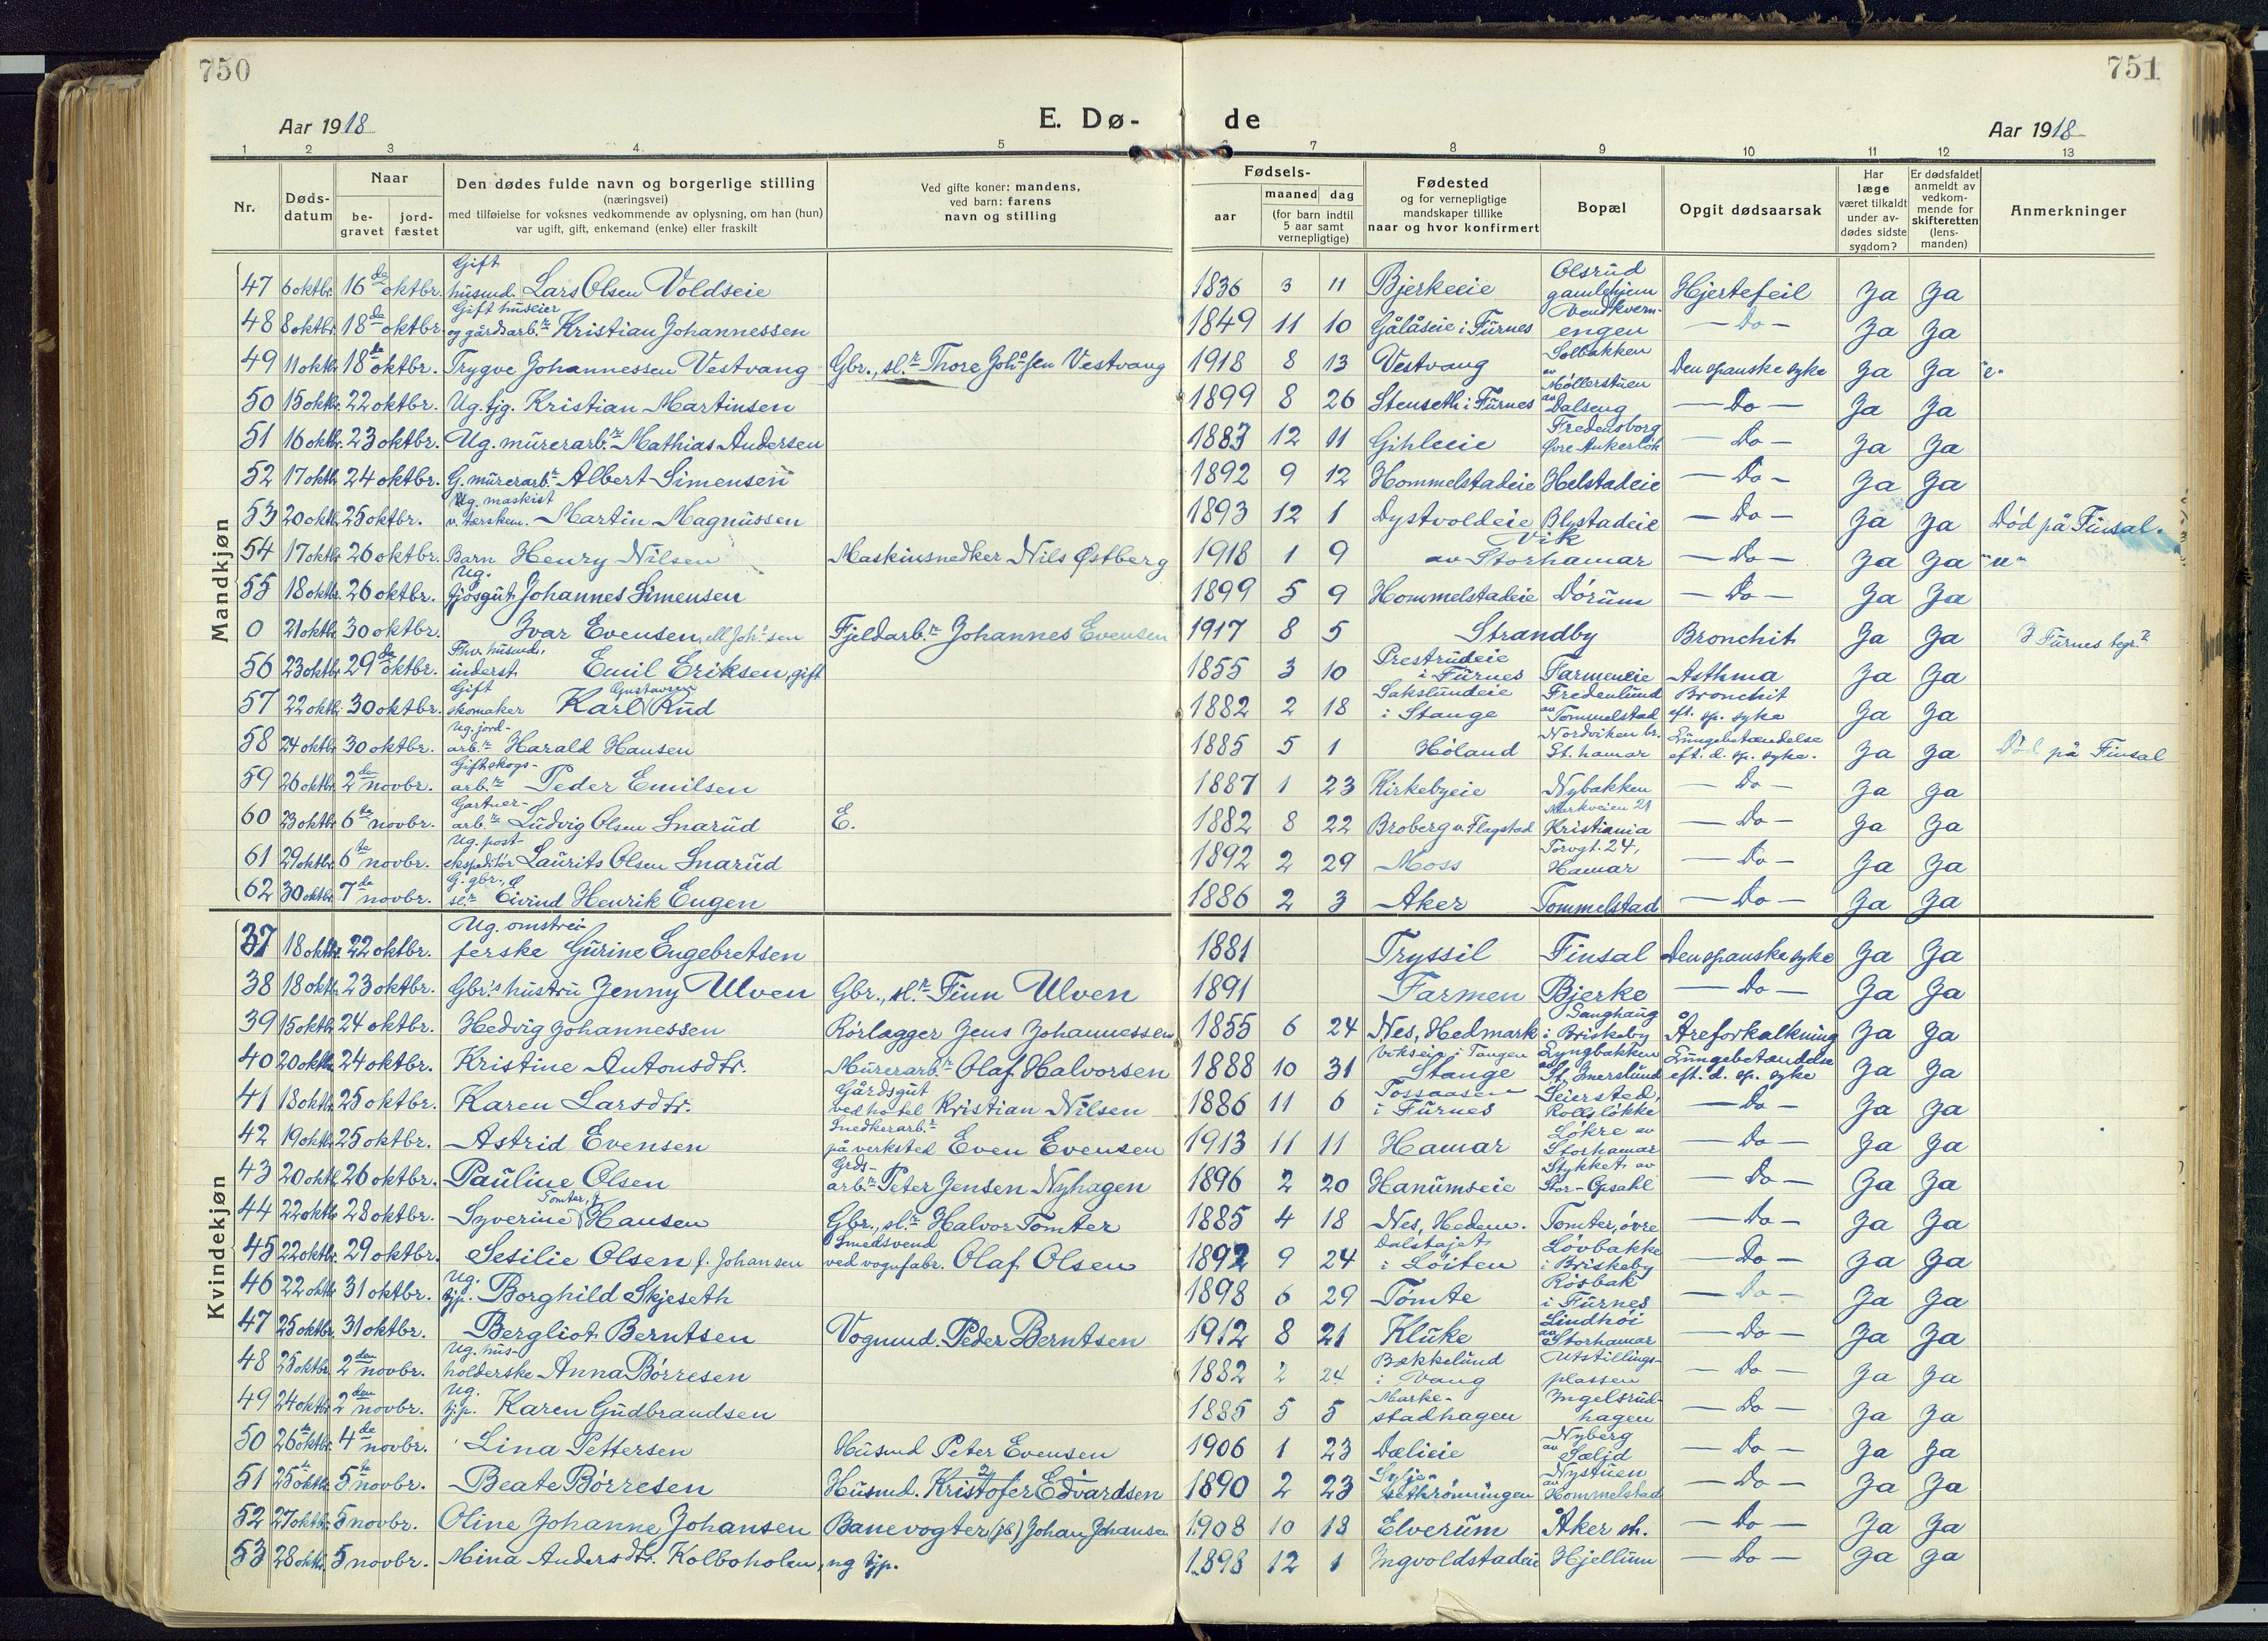 750
751
Aar 1918
E. Dø-
de
Aar 1918
1 2 3 4 5 6 7 8 9 10 11 12 13
Nr.
Døds-
datum
Naar
be-
gravet
jord-
fæstet
Den dødes fulde navn og borgerlige stilling
(næringsvei)
med tilføielse for voksnes vedkommende av oplysning, om han (hun)
var ugift, gift, enkemand (enke) eller fraskilt
Ved gifte koner: mandens,
ved barn: farens
navn og stilling
Fødsels-
aar
maaned dag
(for barn indtil
5 aar samt
vernepligtige)
Fødested
og for vernepligtige
mandskaper tillike
naar og hvor konfirmert
Bopæl
Opgit dødsaarsak
Har
læge
været tilkaldt
under av-
dødes sidste
sygdom?
Er dødsfaldet
anmeldt av
vedkom-
mende for
skifteretten
(lens-
manden)
Anmerkninger
Mandkjøn
47 6 oktbr. 16de oktbr. Gift husmd. Lars Olsen Voldseie 1836 3 11 Bjerkeeie Olsrud gamlehjem Hjertefeil Ja Ja
48 8 oktbr. 18de oktbr. Gift huseier og gårdsarb.r Kristian Johannessen 1849 11 10 Gålåseie i Furnes Vendkvern-engen — Do — Ja Ja
49 11 oktbr. 18de oktbr. Trygve Johannessen Vestvang Gbr., sl.r Thore Joh.sen Vestvang 1918 8 13 Vestvang Solbakken Den spanske syke Ja Ja
50 15 oktbr. 22 oktbr. Ug. tjg. Kristian Martinsen 1899 8 26 Stenseth i Furnes Møllerstuen av Dalseng — Do — Ja Ja
51 16 oktbr. 23 oktbr. Ug. murerarb.r Mathias Andersen 1883 12 11 Gihleeie Fredensborg Øvre Ankerløk — Do — Ja Ja
52 17 oktbr. 24 oktbr. G. murerarb.r Albert Simensen 1892 9 12 Hommelstadeie Helstadeie — Do — Ja Ja
53 20 oktbr. 25 oktbr. Ug. maskist v. tærskem. Martin Magnussen 1893 12 1 Dystvoldeie Blystadeie — Do — Ja Ja Død på Finsal.
54 17 oktbr. 26 oktbr. Barn Henry Nilsen Maskinsnedker Nils Østberg 1918 1 9 Vik av Storhamar — Do — Ja Ja "u"
55 18 oktbr. 26 oktbr. Ug. fjøsgut Johannes Simensen 1899 5 9 Hommelstadeie Dørum — Do — Ja Ja
0 21 oktbr. 30 oktbr. Ivar Evensen, ell. Joh.sen Fjeldarb.r Johannes Evensen 1917 8 5 Strandby Bronchit Ja Ja I Furnes begr.
56 23 oktbr. 29de oktbr. Fhv. husmd., inderst Emil Eriksen, gift 1855 3 10 Prestrudeie i Furnes Farmeneie Asthma Ja Ja
57 22 oktbr. 30 oktbr. Gift skomaker Karl Gustavsen Rud 1882 2 18 Sakslundeie i Stange Fredenlund av Tommelstad Bronchit eft. sp. syke Ja Ja
58 24 oktbr. 30 oktbr. Ug. jord-arb.r Harald Hansen 1885 5 1 Høland Nordviken br. St. hamar Lungebetændelse eft. d. sp. syke. Ja Ja Død på Finsal
59 26 oktbr. 2den novbr. Gift skogs-arb.r Peder Emilsen 1887 1 23 Kirkebyeie Nybakken — Do — Ja Ja
60 23 oktbr. 6te novbr. Gartner-arb.r Ludvig Olsen Snarud E. 1882 8 22 Broberg v. Flagstad Markveien 21 Kristiania — Do — Ja Ja
61 29 oktbr. 6te novbr. Ug. post-ekspeditør Laurits Olsen Snarud 1892 2 29 Moss Torvgt. 24, Hamar — Do — Ja Ja
62 30 oktbr. 7de novbr. G. gbr., sl.r Eivind Henrik Engen 1886 2 3 Aker Tommelstad — Do — Ja Ja
Kvindekjøn
37 18 oktbr. 22 oktbr. Ug. omstreiferske Gurine Engebretsen 1881 Tryssil Finsal Den spanske syke Ja Ja
38 18 oktbr. 23 oktbr. Gbr.'s hustru Jenny Ulven Gbr., sl.r Finn Ulven 1891 Farmen Bjerke — Do — Ja Ja
39 15 oktbr. 24 oktbr. Hedvig Johannessen Rørlægger Jens Johannessen 1855 6 24 Nes, Hedmark Sanghaug i Briskeby Åreforkalkning Ja Ja
40 20 oktbr. 24 oktbr. Kristine Antonsdtr. Murerarb.r Olaf Halvorsen 1888 10 31 i Tangen Stange Lyngbakken av St. Imerslund Lungebetændelse eft. d. sp. syke Ja Ja
41 18 oktbr. 25 oktbr. Karen Larsdtr. Gårdsgut ved hotel Kristian Nilsen 1886 11 6 Tossaasen i Furnes Seiersted, Rollsløkke — Do — Ja Ja
42 19 oktbr. 25 oktbr. Astrid Evensen Snedkerarb.r på verksted Even Evensen 1913 11 11 Hamar Løkre av Storhamar — Do — Ja Ja
43 20 oktbr. 26 oktbr. Pauline Olsen Grds-arb.r Peter Jensen Nyhagen 1896 2 20 Hanumseie Stykket av Stor-Opsahl — Do — Ja Ja
44 22 oktbr. 28 oktbr. Syverine Tomter, f. Hansen Gbr., sl.r Halvor Tomter 1885 4 18 Nes, Hedem. Tomter, øvre — Do — Ja Ja
45 22 oktbr. 29 oktbr. Sesilie Olsen f. Johansen Smedsvend ved vognfabr. Olaf Olsen 1892 9 24 Dalstajet i Løiten Løvbakke i Briskeby — Do — Ja Ja
46 22 oktbr. 31 oktbr. Ug. tjp. Borghild Skjeseth 1898 6 29 Tomte Rosbak i Furnes — Do — Ja Ja
47 25 oktbr. 31 oktbr. Bergliot Berntsen Vognmd. Peder Berntsen 1912 8 21 Kluke Lindhøi av Storhamar — Do — Ja Ja
48 25 oktbr. 2den novbr. Ug. hus-holderske Anna Børresen 1882 2 24 Bækkelund i Vang Utstillings-plassen — Do — Ja Ja
49 24 oktbr. 2den novbr. Ug. tj.p. Karen Gudbrandsen 1885 5 5 Marke-stadhagen Ingelsrud-hagen — Do — Ja Ja
50 26te oktbr. 4de novbr. Lina Pettersen Husmd Peter Evensen 1906 1 23 Dælieie Nyberg av Sælid — Do — Ja Ja
51 25te oktbr. 5te novbr. Beate Børresen Husmd. Kristofer Edvardsen 1890 2 23 Nystuen av Hommelstad — Do — Ja Ja
52 27 oktbr. 5 novbr. Oline Johanne Johansen Banevogter (jb) Johan Johansen 1908 10 18 Elverum Åker st. — Do — Ja Ja
53 28 oktbr. 5 novbr. Mina Andersdtr. Kolboholen, ug tjp. 1898 12 1 Ingvoldstadeie Hjellum — Do — Ja Ja